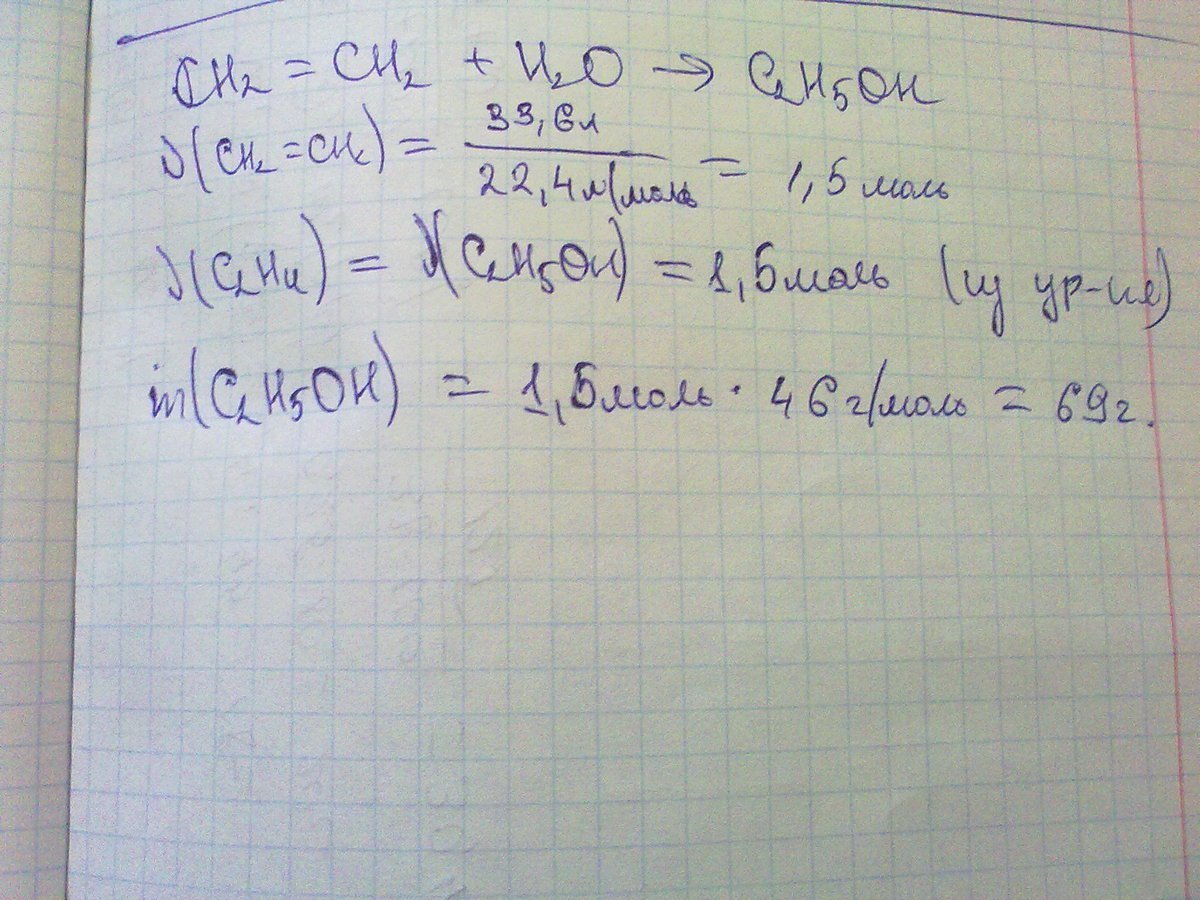 CH₂ = CH₂ + H₂O → C₂H₅OH
ν(CH₂ = CH₂) = 33,6л / 22,4л/моль = 1,5 моль
ν(C₂H₄) = ν(C₂H₅OH) = 1,5 моль (из ур-ия)
m(C₂H₅OH) = 1,5 моль · 46 г/моль = 69г.